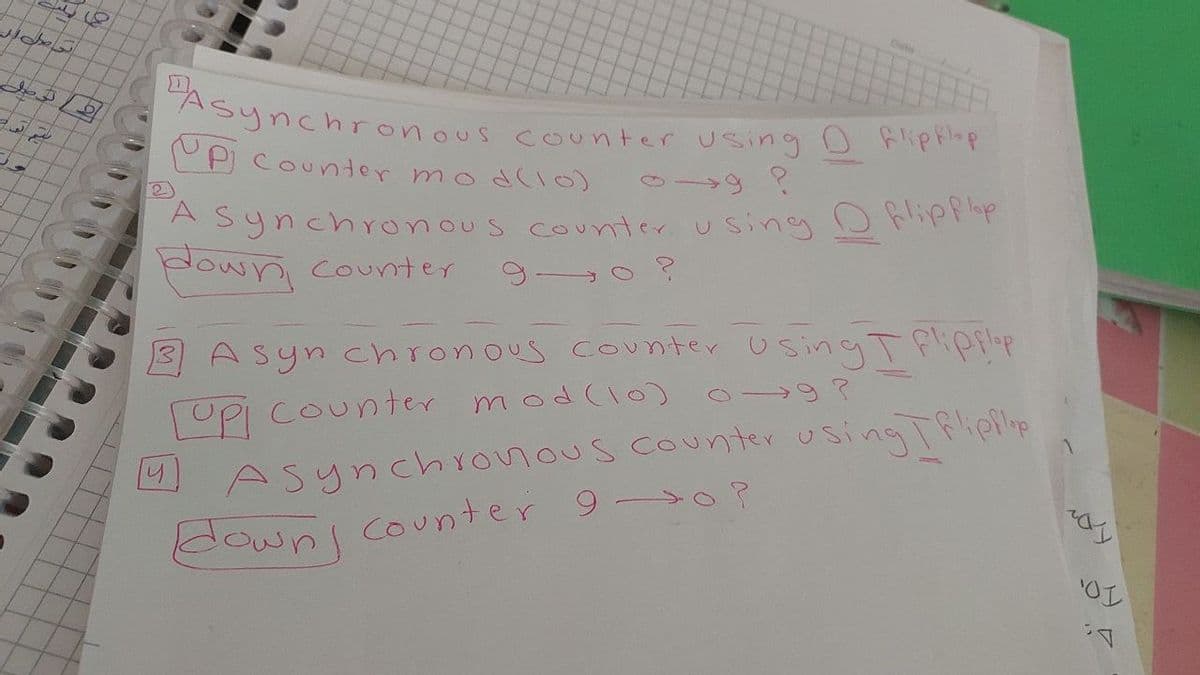 1 Asynchronous counter using D flipflop
UP counter mod(10) 0→9 ?
2 Asynchronous counter using D flipflop
down counter 9→0 ?
3 Asynchronous counter using T flipflop
UP counter mod(10) 0→9 ?
4 Asynchronous counter using T flipflop
down counter 9→0 ?